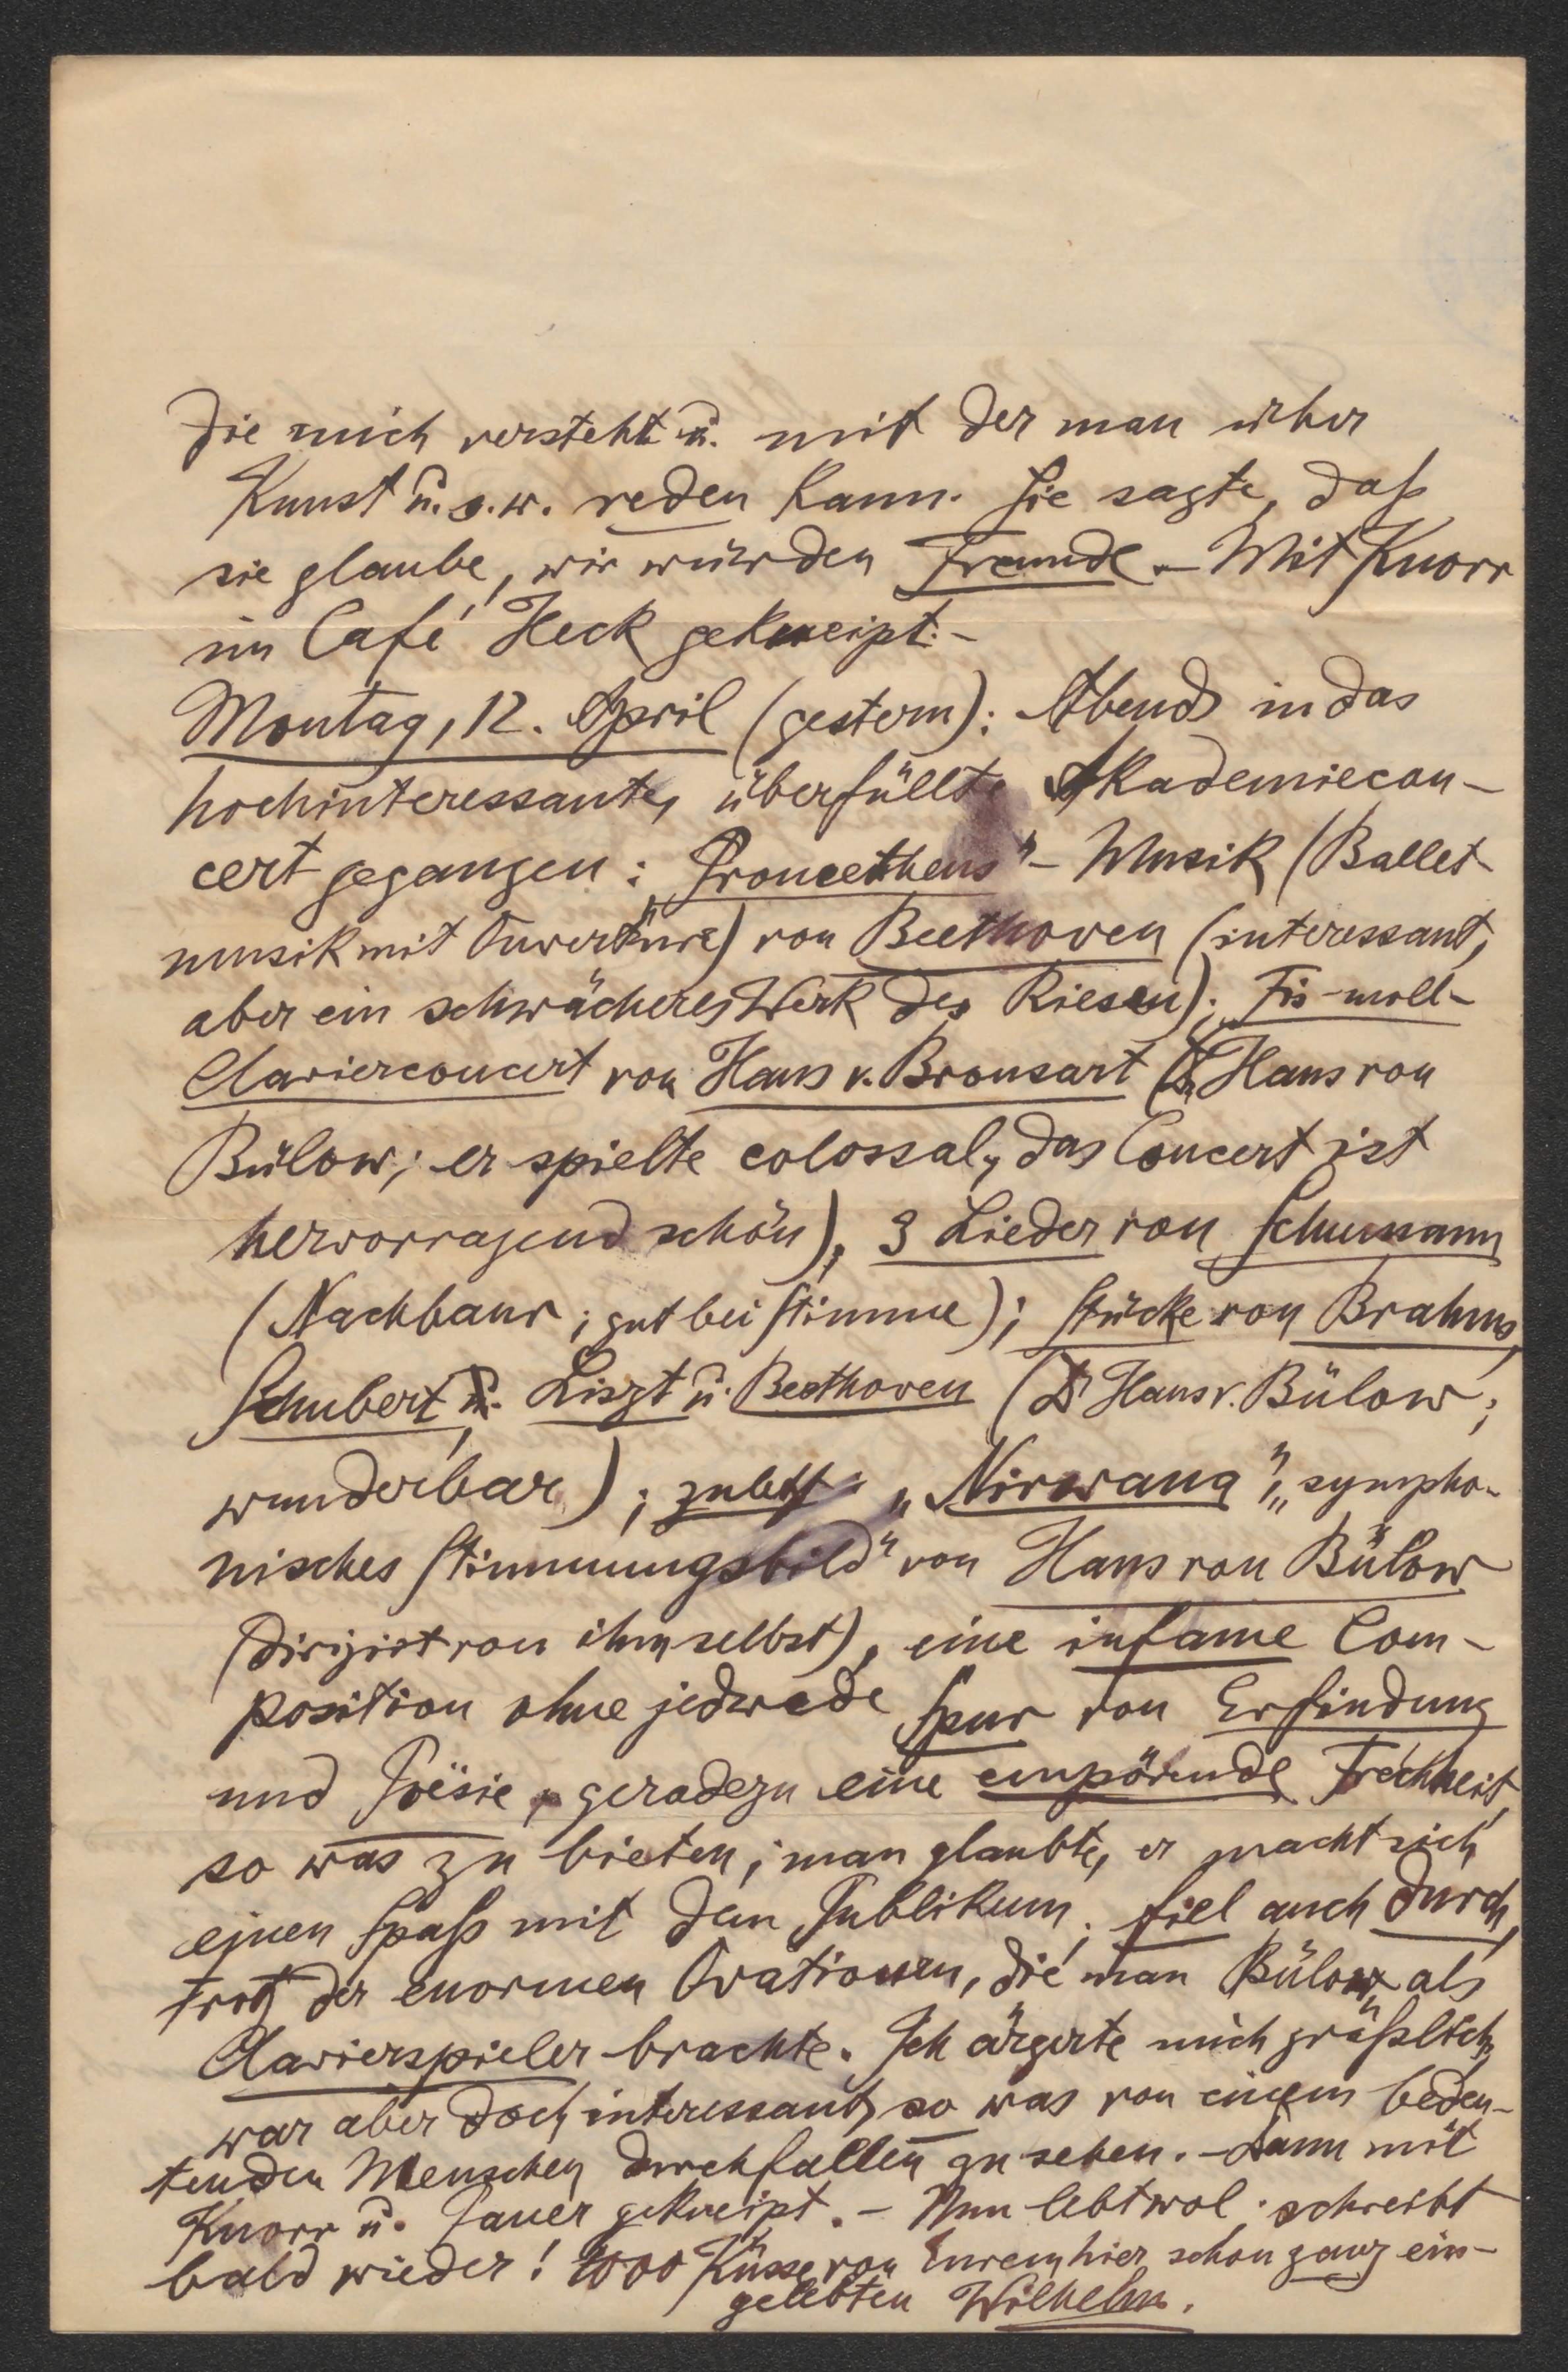 die mich versteht u. mit der man über
Kunst u.s.w. reden kann. Sie sagte, daß
sie glaube, wir würden Freunde. – Mit Knorr
im Café Heck gekneipt. –
Montag, 12. April (gestern): Abends in das
hochinteressante, überfüllte Akademiecon-
cert gegangen: „Prometheus" – Musik (Ballet-
musik mit Ouvertüre) von Beethoven (interessant,
aber ein schwächeres Werk des Riesen); Fis-moll-
Clavierconcert von Hans v. Bronsart (Dr Hans von
Bülow; er spielte colossal, das Concert ist
hervorragend schön); 3 Lieder von Schumann
(Nachbaur; gut bei Stimme); Stücke von Brahms,
Schubert, u. Liszt u. Beethoven (Dr Hans v. Bülow;
wunderbar); zuletzt: „Nirwana", „sympho-
nisches Stimmungsbild" von Hans von Bülow
(dirigirt von ihm selbst), eine infame Com-
position ohne jedwede Spur von Erfindung
und Poësie, geradezu eine empörende Frechheit,
so was zu bieten; man glaubte, er macht sich
einen Spaß mit dem Publikum; fiel auch durch,
trotz der enormen Ovationen, die man Bülow als
Clavierspieler brachte. Ich ärgerte mich gräßlich,
war aber doch interessant, so was von einem bedeu-
tenden Menschen durchfallen zu sehen. – Dann mit
Knorr u. gekneipt. – Nun lebt wol; schreibt
bald wieder! 1000 Küsse von Eurem hier schon ganz ein-
gelebten Wilhelm.